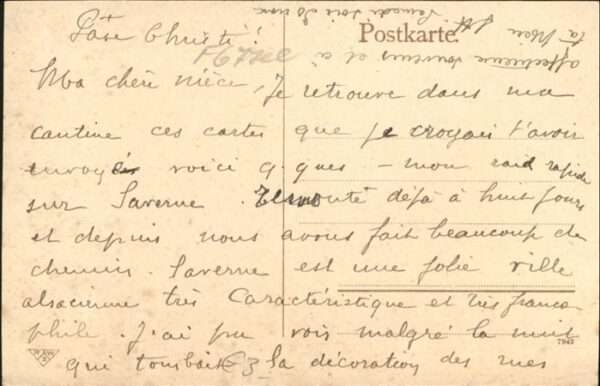 Pax Christi!
Postkarte.
Ma chère nièce, Je retrouve dans ma
cantine ces cartes que je croyais t'avoir
envoyés voici q. ques - mon raid rapide
sur Saverne. Remonte déjà à huit jours
et depuis nous avons fait beaucoup de
chemin. Saverne est une jolie ville
alsacienne très caractéristique et très franco
phile. J'ai pu voir malgré la nuit
qui tombait la décoration des rues
affectueux souvenirs et à
ta Mère
7943